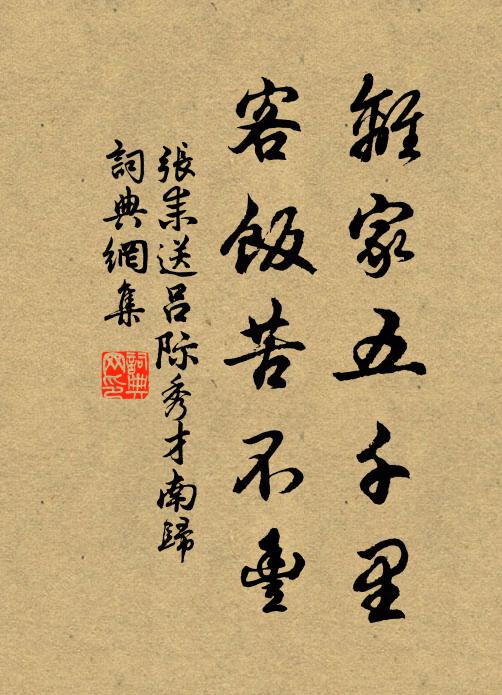 離家五千里
客飯苦不豐
張耒送呂際秀才南歸
詞典網集
詞典網印